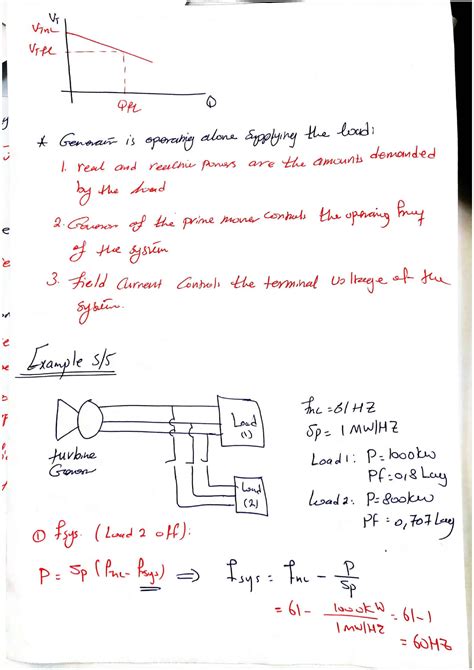 VT
VTnL
VTfL
QfL
Q
* Generator is operating alone supplying the load:
1. real and reactive powers are the amounts demanded
by the load
2. Governor of the prime mover controls the operating freq
of the system
3. field current controls the terminal voltage of the
system.
Example 5/5
Load
(1)
turbine
Load
(2)
fnL = 61 HZ
Sp = 1 MW/HZ
Load 1: P = 1000 kW
Pf = 0,8 Lag
Load 2: P = 800 kW
Pf = 0,707 Lag
① fsys. (Load 2 off):
P = Sp (fnL - fsys) ⟹ fsys = fnL - P/Sp
= 61 - 1000 kW / 1 MW/HZ = 61 - 1
= 60 HZ